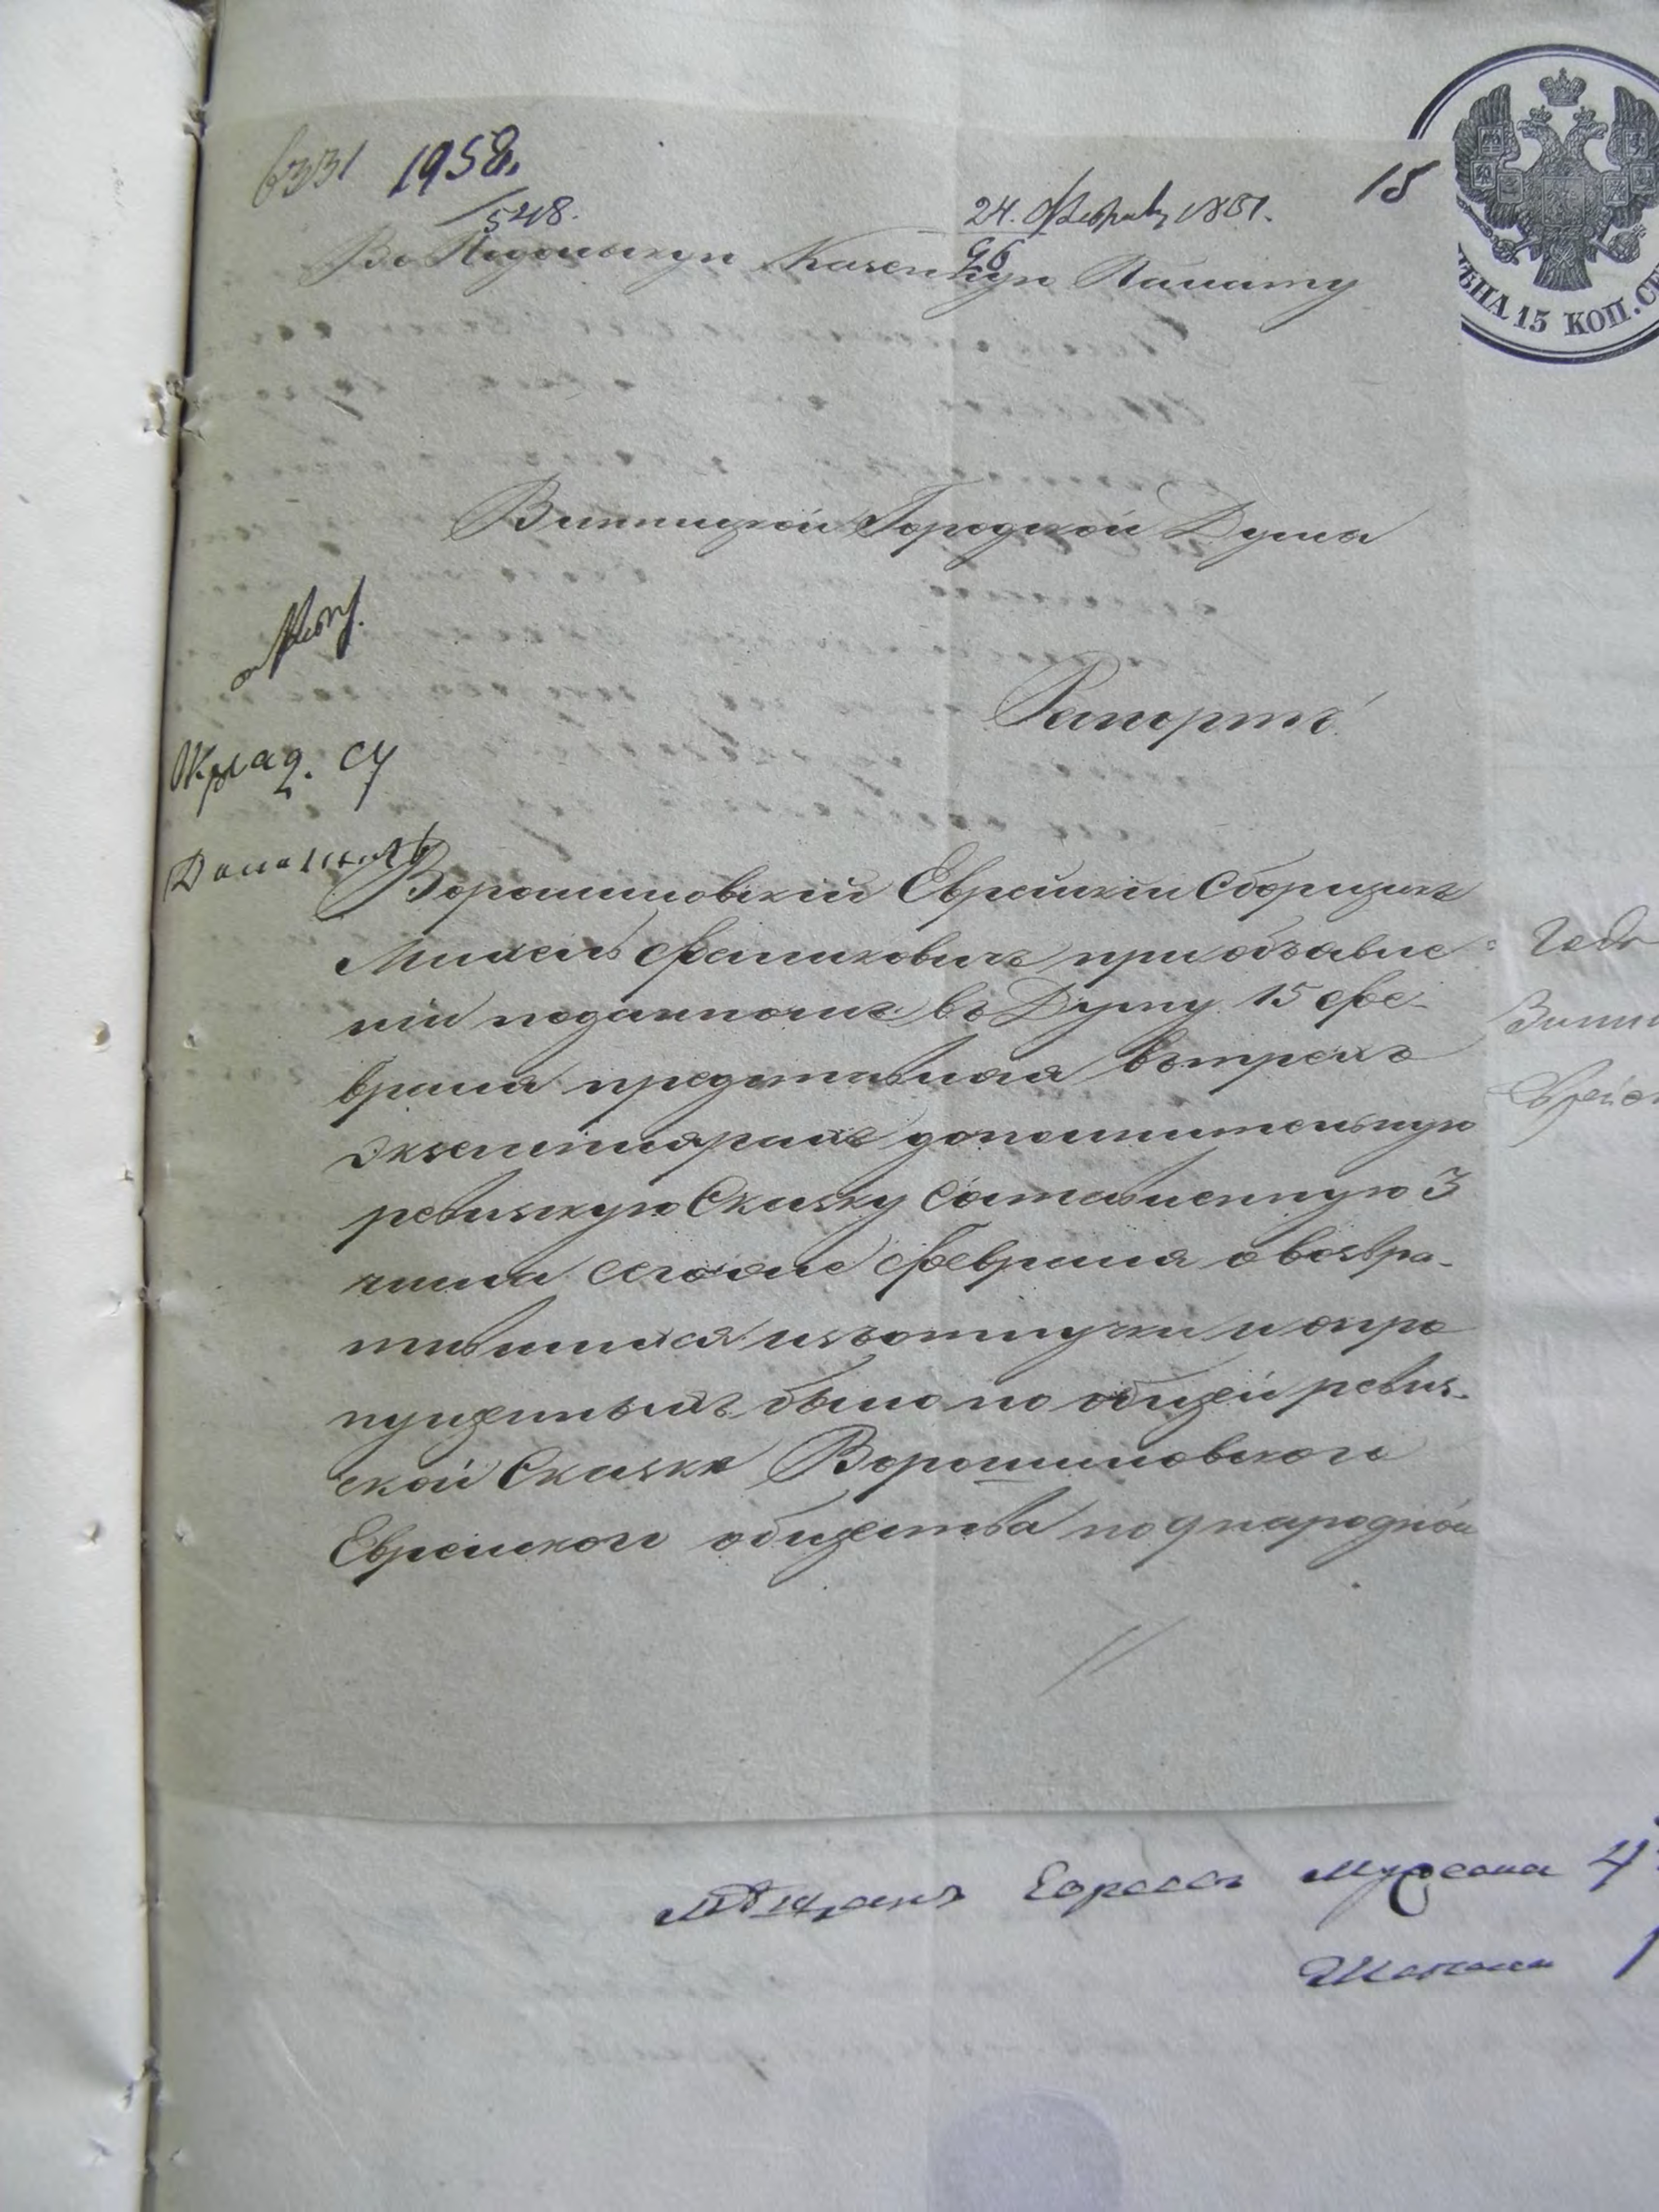 6331 1958. 15
548. 24. Февраля 1851.
96
Въ Подольскую Казенную Палату
ЦѢНА 15 КОП. СЕ
Винницкой Городской Думы
Рапортъ
Ворошиловскій Еврейскій Сборщикъ
Михель Файнковичъ при объявле
ніи поданномъ въ Думу 15 фе-
враля представляя въ трехъ
экземплярахъ дополнительную
ревизскую Сказку Составленную 3
числа сегоже февраля о возвра-
тившихся изъ отлучки и опро
пущенныхъ было по общей ревиз-
ской Сказкѣ Ворошиловскаго
Еврейскаго общества по 9 народной
Мѣщанъ Евреевъ Мужеска 4
Женска 1